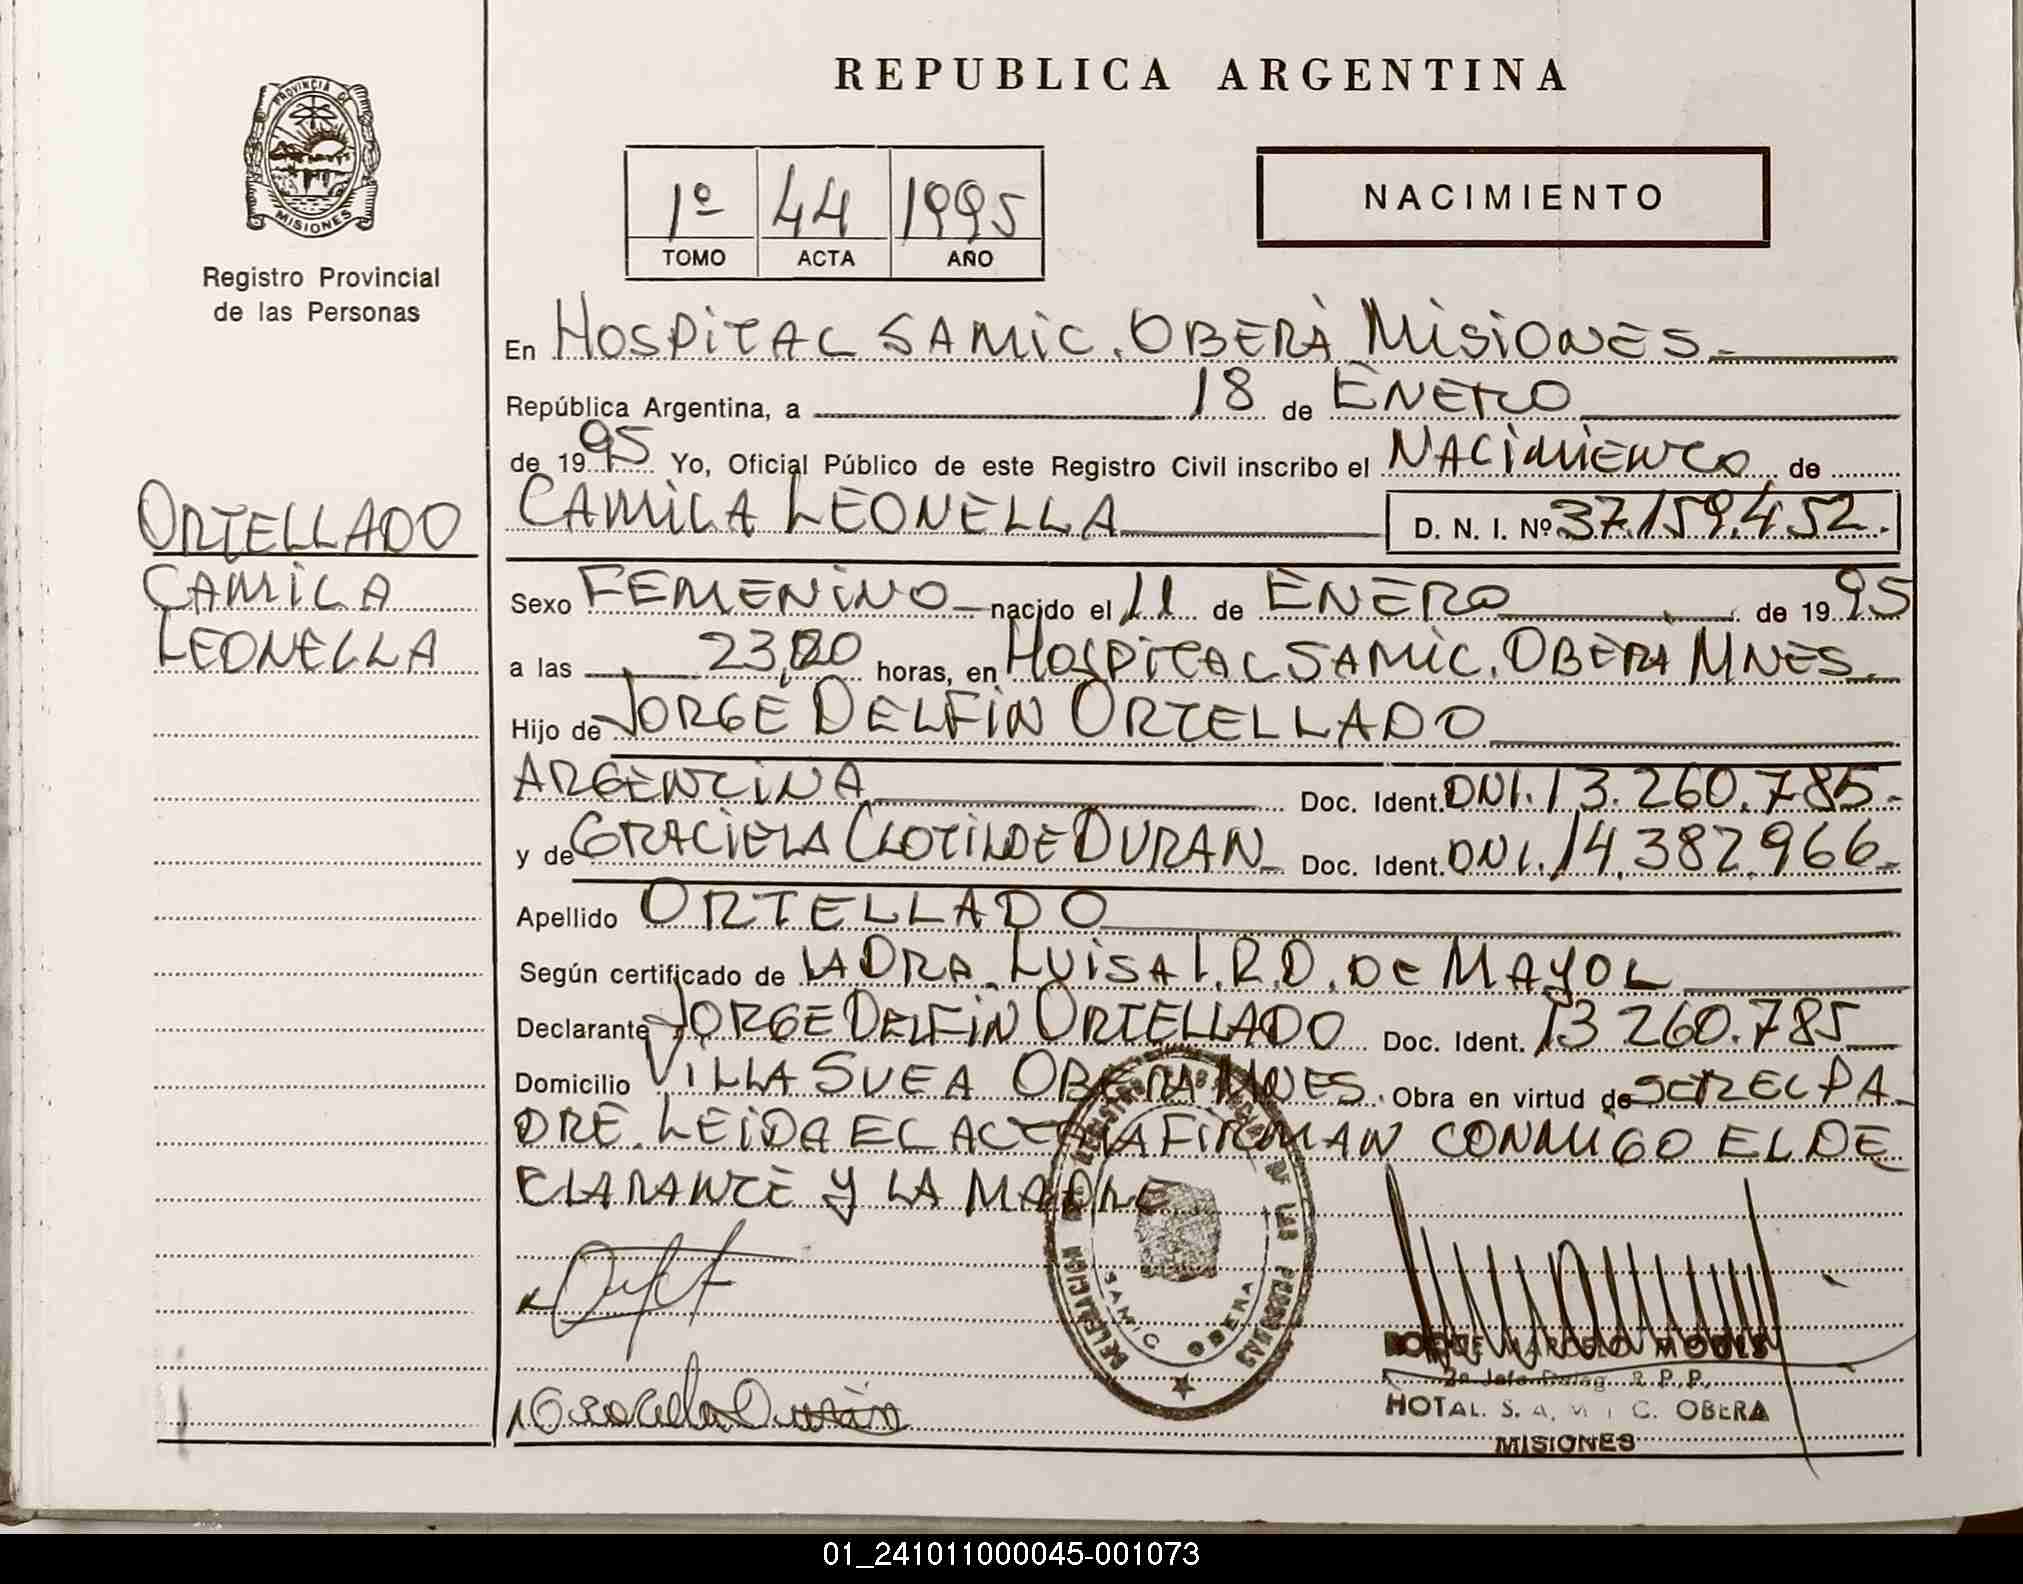 REPUBLICA ARGENTINA
PROVINCIA DE
MISIONES
Registro Provincial
de las Personas
1º 44 1995
TOMO ACTA AÑO
NACIMIENTO
En HOSPITAL SAMIC. OBERÁ MISIONES
República Argentina, a 18 de ENERO
de 1995 Yo, Oficial Público de este Registro Civil inscribo el NACIMIENTO de
CAMILA LEONELLA D. N. I. Nº 37.159.452.
ORTELLADO
CAMILA
LEONELLA
Sexo FEMENINO nacido el 11 de ENERO de 1995
a las horas, en HOSPITAL SAMIC. OBERA MNES.
Hijo de JORGE DELFIN ORTELLADO
ARGENTINA Doc. Ident. DNI. 13.260.785
y de GRACIELA CLOTILDE DURAN Doc. Ident. DNI. 14.382.966
Apellido ORTELLADO
Según certificado de LA DRA. LUISA I. R. D. DE MAYOL
Declarante JORGE DELFIN ORTELLADO Doc. Ident. 13 260.785
Domicilio VILLA SVEA OBERA MNES. Obra en virtud de SER EL PA
DRE. LEIDA EL ACTA LA FIRMAN CONMIGO EL DE
CLARANTE Y LA MADRE
DELEGACION REGISTRO PROVINCIAL DE LAS PERSONAS
SAMIC OBERA
Graciela Durán
2º Jefe Deleg. R. P. P.
HOTAL. S. A. M. I. C. OBERA
MISIONES
01_241011000045-001073